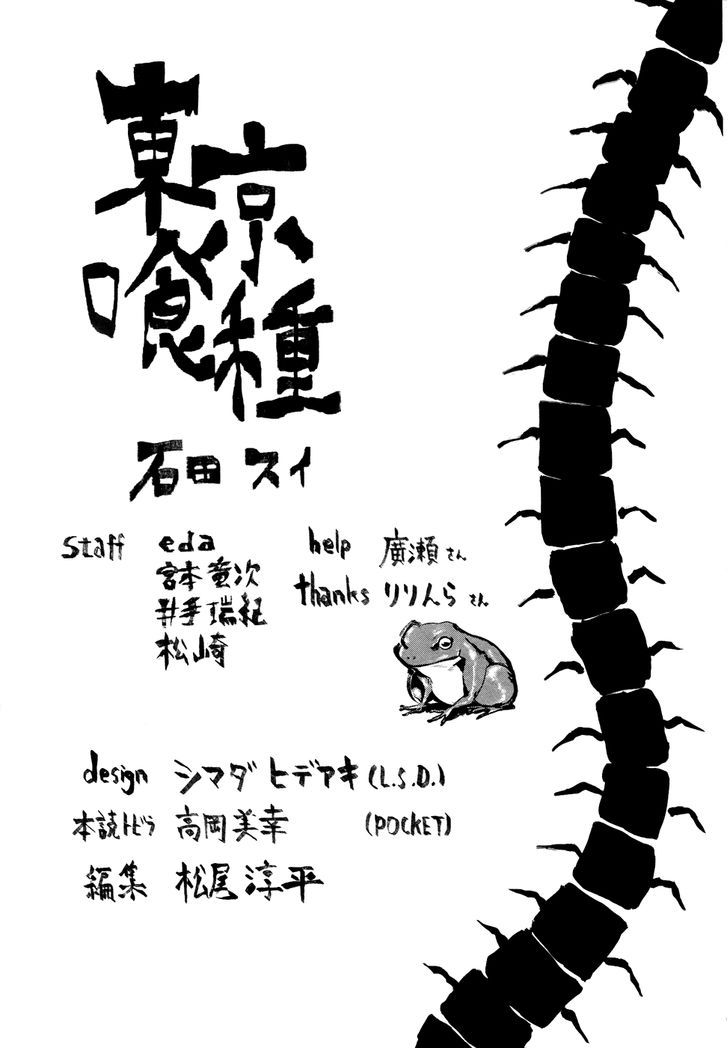 東京
喰種
石田 スイ
staff eda
宮本竜次
井手瑞紀
松崎
help 廣瀬さん
thanks りりんらさん
design シマダ ヒデアキ (L.S.D.)
本読トビラ 高岡美幸 (POCKET)
編集 松尾淳平